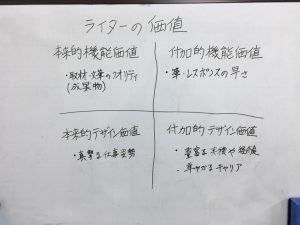 ライターの価値
本来的機能価値
・取材・文章のクオリティ
(成果物)
付加的機能価値
・筆・レスポンスの早さ
本来的デザイン価値
・真摯な仕事姿勢
付加的デザイン価値
・豊富な実績や経験
・華やかなキャリア